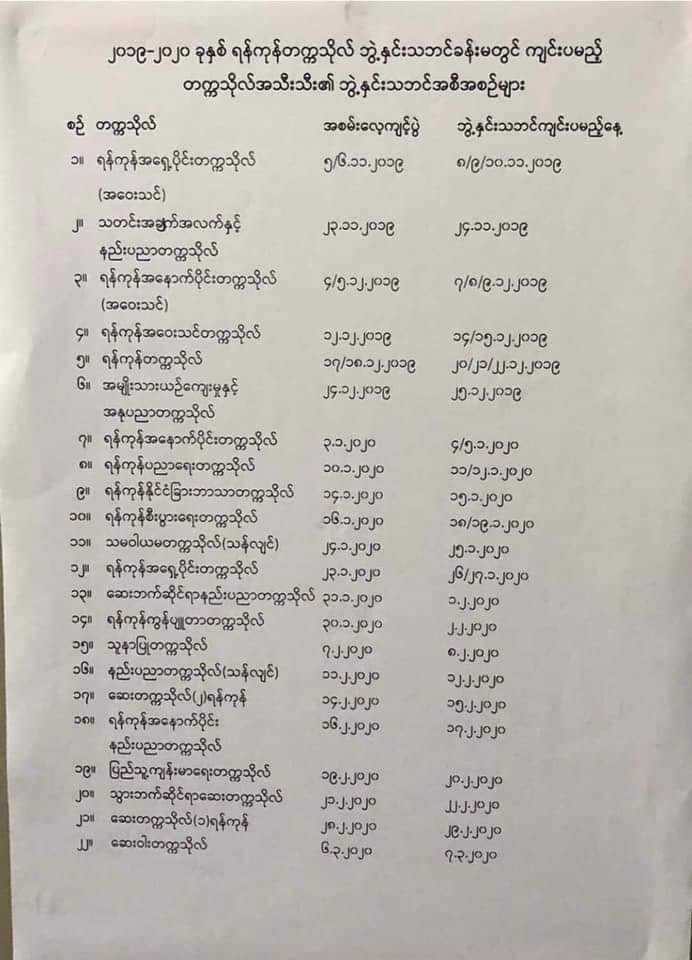 ၂၀၁၉-၂၀၂၀ ခုနှစ် ရန်ကုန်တက္ကသိုလ် ဘွဲ့နှင်းသဘင်ခန်းမတွင် ကျင်းပမည့်
တက္ကသိုလ်အသီးသီး၏ ဘွဲ့နှင်းသဘင်အစီအစဉ်များ
စဉ် တက္ကသိုလ် အစမ်းလေ့ကျင့်ပွဲ ဘွဲ့နှင်းသဘင်ကျင်းပမည့်နေ့
၁။ ရန်ကုန်အရှေ့ပိုင်းတက္ကသိုလ် ၅/၆.၁၁.၂၀၁၉ ၈/၉/၁၀.၁၁.၂၀၁၉
(အဝေးသင်)
၂။ သတင်းအချက်အလက်နှင့် ၂၃.၁၁.၂၀၁၉ ၂၄.၁၁.၂၀၁၉
နည်းပညာတက္ကသိုလ်
၃။ ရန်ကုန်အနောက်ပိုင်းတက္ကသိုလ် ၄/၅.၁၂.၂၀၁၉ ၇/၈/၉.၁၂.၂၀၁၉
(အဝေးသင်)
၄။ ရန်ကုန်အဝေးသင်တက္ကသိုလ် ၁၂.၁၂.၂၀၁၉ ၁၄/၁၅.၁၂.၂၀၁၉
၅။ ရန်ကုန်တက္ကသိုလ် ၁၇/၁၈.၁၂.၂၀၁၉ ၂၀/၂၁/၂၂.၁၂.၂၀၁၉
၆။ အမျိုးသားယဉ်ကျေးမှုနှင့် ၂၄.၁၂.၂၀၁၉ ၂၅.၁၂.၂၀၁၉
အနုပညာတက္ကသိုလ်
၇။ ရန်ကုန်အနောက်ပိုင်းတက္ကသိုလ် ၃.၁.၂၀၂၀ ၄/၅.၁.၂၀၂၀
၈။ ရန်ကုန်ပညာရေးတက္ကသိုလ် ၁၀.၁.၂၀၂၀ ၁၁/၁၂.၁.၂၀၂၀
၉။ ရန်ကုန်နိုင်ငံခြားဘာသာတက္ကသိုလ် ၁၄.၁.၂၀၂၀ ၁၅.၁.၂၀၂၀
၁၀။ ရန်ကုန်စီးပွားရေးတက္ကသိုလ် ၁၆.၁.၂၀၂၀ ၁၈/၁၉.၁.၂၀၂၀
၁၁။ သမဝါယမတက္ကသိုလ်(သန်လျင်) ၂၄.၁.၂၀၂၀ ၂၅.၁.၂၀၂၀
၁၂။ ရန်ကုန်အရှေ့ပိုင်းတက္ကသိုလ် ၂၃.၁.၂၀၂၀ ၂၆/၂၇.၁.၂၀၂၀
၁၃။ ဆေးဘက်ဆိုင်ရာနည်းပညာတက္ကသိုလ် ၃၁.၁.၂၀၂၀ ၁.၂.၂၀၂၀
၁၄။ ရန်ကုန်ကွန်ပျူတာတက္ကသိုလ် ၃၀.၁.၂၀၂၀ ၂.၂.၂၀၂၀
၁၅။ သူနာပြုတက္ကသိုလ် ၇.၂.၂၀၂၀ ၈.၂.၂၀၂၀
၁၆။ နည်းပညာတက္ကသိုလ်(သန်လျင်) ၁၁.၂.၂၀၂၀ ၁၂.၂.၂၀၂၀
၁၇။ ဆေးတက္ကသိုလ်(၂)ရန်ကုန် ၁၄.၂.၂၀၂၀ ၁၅.၂.၂၀၂၀
၁၈။ ရန်ကုန်အနောက်ပိုင်း ၁၆.၂.၂၀၂၀ ၁၇.၂.၂၀၂၀
နည်းပညာတက္ကသိုလ်
၁၉။ ပြည်သူ့ကျန်းမာရေးတက္ကသိုလ် ၁၉.၂.၂၀၂၀ ၂၀.၂.၂၀၂၀
၂၀။ သွားဘက်ဆိုင်ရာဆေးတက္ကသိုလ် ၂၁.၂.၂၀၂၀ ၂၂.၂.၂၀၂၀
၂၁။ ဆေးတက္ကသိုလ်(၁)ရန်ကုန် ၂၈.၂.၂၀၂၀ ၂၉.၂.၂၀၂၀
၂၂။ ဆေးဝါးတက္ကသိုလ် ၆.၃.၂၀၂၀ ၇.၃.၂၀၂၀